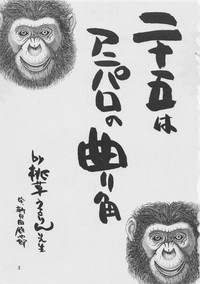 二十五は
アニパロの
曲り角
by 桃草うらん先生